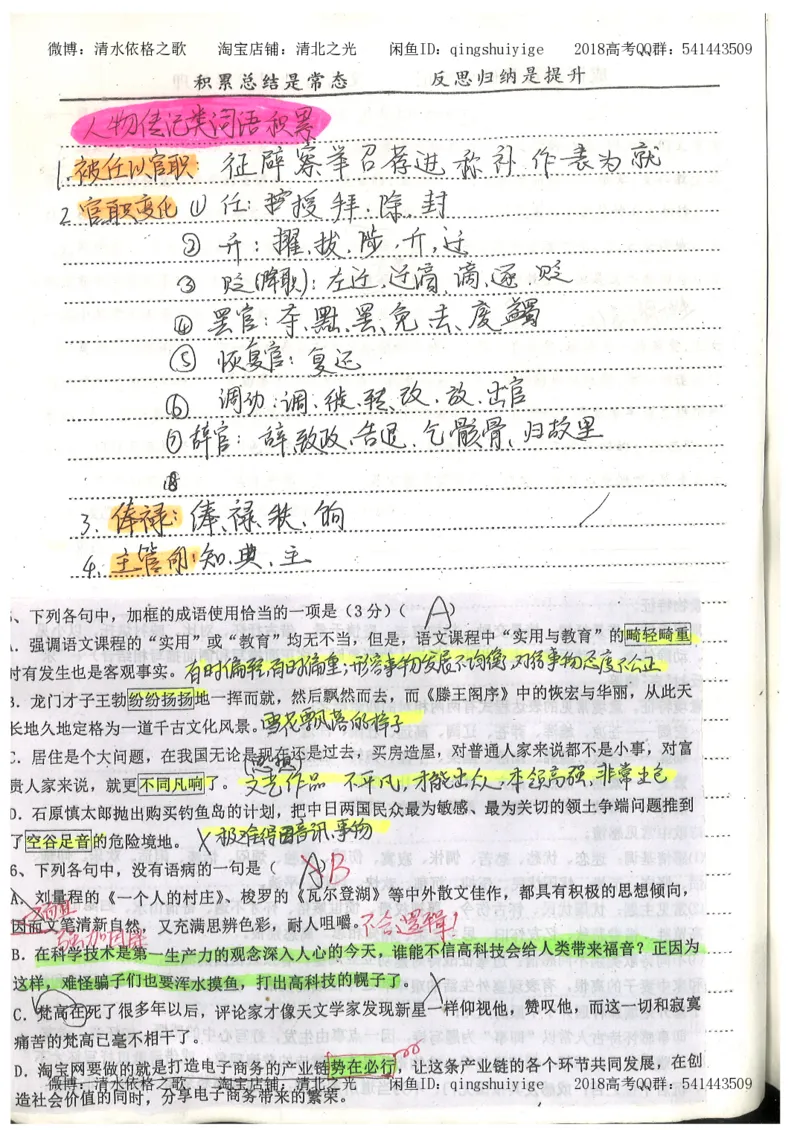 微博：清水依格之歌 淘宝店铺：清北之光 闲鱼ID：qingshuiyige 2018高考QQ群：541443509
积累总结是常态 反思归纳是提升
人物传记类词语积累
1.被任以官职 征辟察举召荐进称补作表为就
2.官职变化 ① 任：授拜.除.封
② 升：擢、拔、陟、升、迁
③ 贬(降职)：左迁、迁谪、谪、逐、贬
④ 罢官：夺、黜、罢、免、去、废蠲
⑤ 恢复官：复还
⑥ 调动：调、徙、转、改、放、出官
⑦辞官：辞、致政、告退、乞骸骨、归故里
⑧
3.俸禄：俸、禄、秩、饷
4.主管的：知、典、主
、下列各句中，加框的成语使用恰当的一项是（3分）（ A ）
．强调语文课程的“实用”或“教育”均无不当，但是，语文课程中“实用与教育”的畸轻畸重
时有发生也是客观事实。有时偏轻，有时偏重；形容事物发展不均衡，对待事物态度不公正
B．龙门才子王勃纷纷扬扬地一挥而就，然后飘然而去，而《滕王阁序》中的恢宏与华丽，从此天
长地久地定格为一道千古文化风景。雪花飘落的样子
C．居住是个大问题，在我国无论是现在还是过去，买房造屋，对普通人家来说都不是小事，对富
(思想)
贵人家来说，就更不同凡响了。 文艺作品 不平凡，才能出众，本领高强，非常出色
D．石原慎太郎抛出购买钓鱼岛的计划，把中日两国民众最为敏感、最为关切的领土争端问题推到
了空谷足音的危险境地。 X 极难得音讯、事物
6、下列各句中，没有语病的一句是（ A B
A、刘量程的《一个人的村庄》、梭罗的《瓦尔登湖》等中外散文佳作，都具有积极的思想倾向，
因而文笔清新自然，又充满思辨色彩，耐人咀嚼。不合逻辑！
强加因果
B．在科学技术是第一生产力的观念深入人心的今天，谁能不信高科技会给人类带来福音？正因为
这样，难怪骗子们也要浑水摸鱼，打出高科技的幌子了。
C．梵高在死了很多年以后，评论家才像天文学家发现新星一样仰视他，赞叹他，而这一切和寂寞
痛苦的梵高已毫不相干了。
D．淘宝网要做的就是打造电子商务的产业链势在必行，让这条产业链的各个环节共同发展，在创
微博：清水依格之歌 淘宝店铺：清北之光 闲鱼ID：qingshuiyige 2018高考QQ群：541443509
造社会价值的同时，分享电子商务带来的繁荣。